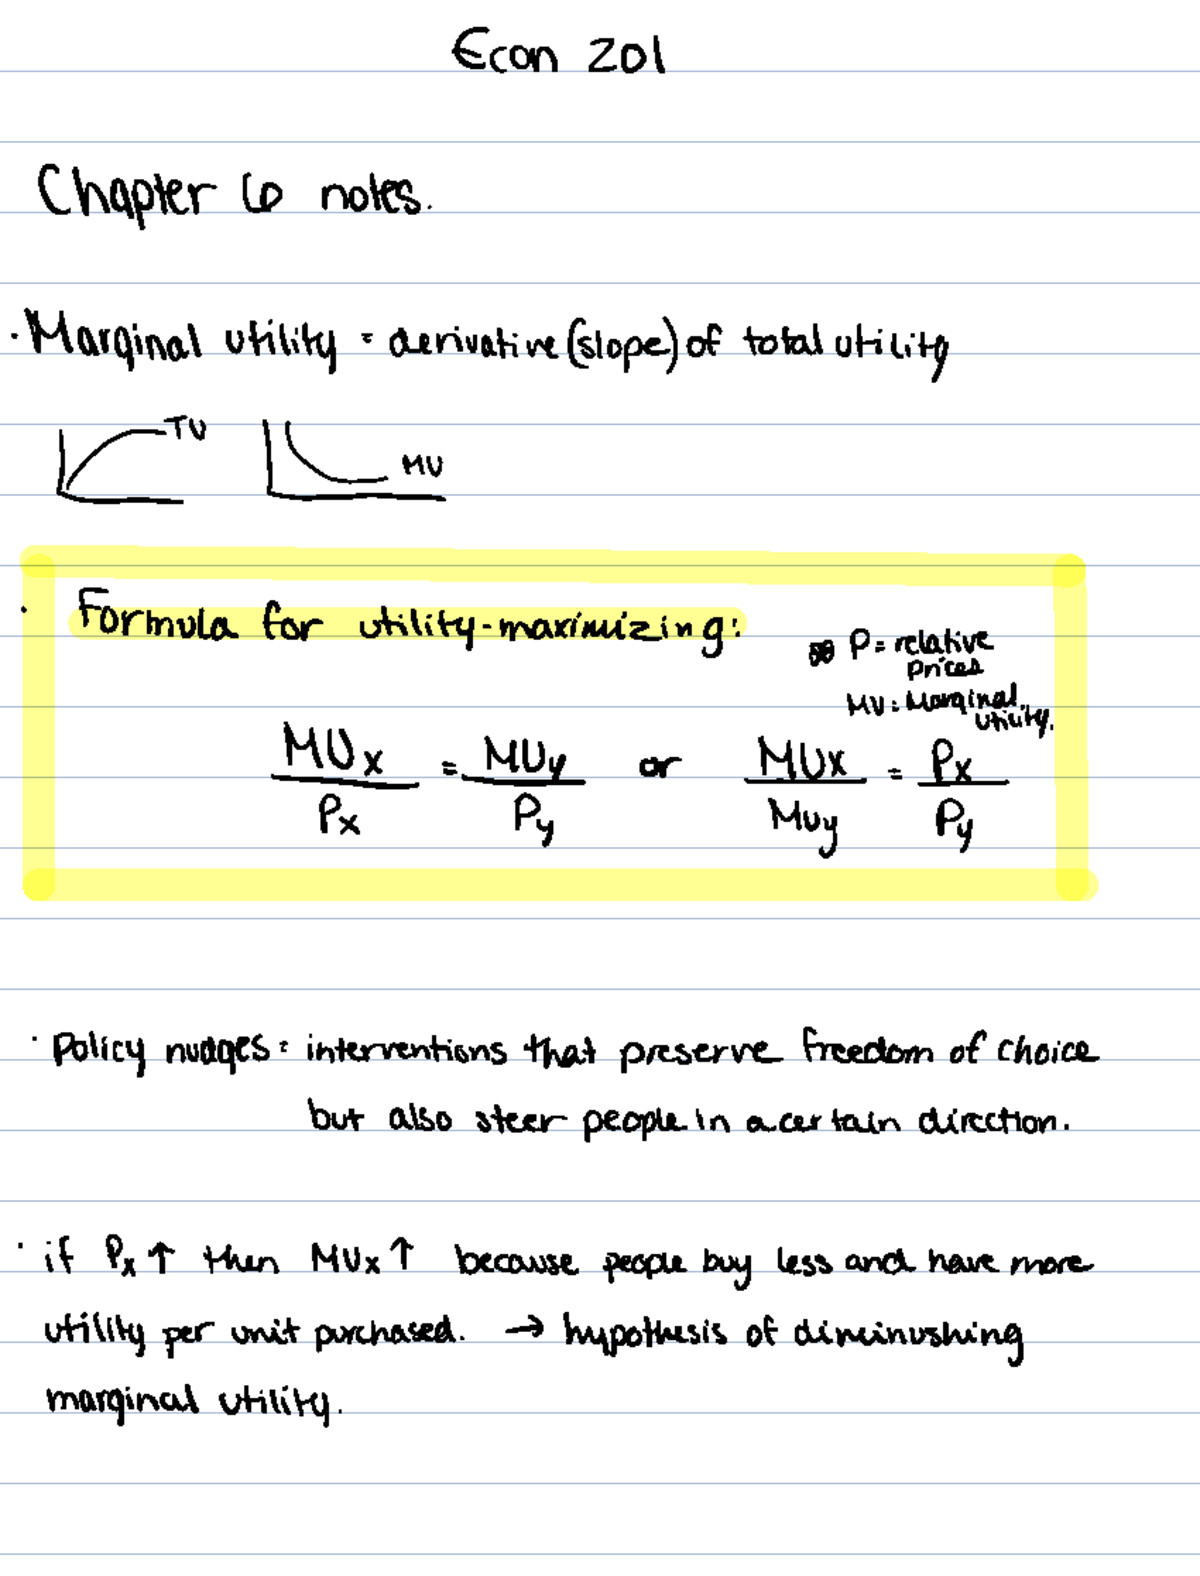 Econ 201
Chapter 6 notes.
· Marginal utility = derivative (slope) of total utility
TU
MU
· Formula for utility-maximizing:
P = relative
prices
MU = Marginal
utility.
MUx / Px = MUy / Py or MUx / MUy = Px / Py
· Policy nudges = interventions that preserve freedom of choice
but also steer people in a certain direction.
· if Px ↑ then MUx ↑ because people buy less and have more
utility per unit purchased. → hypothesis of diminushing
marginal utility.